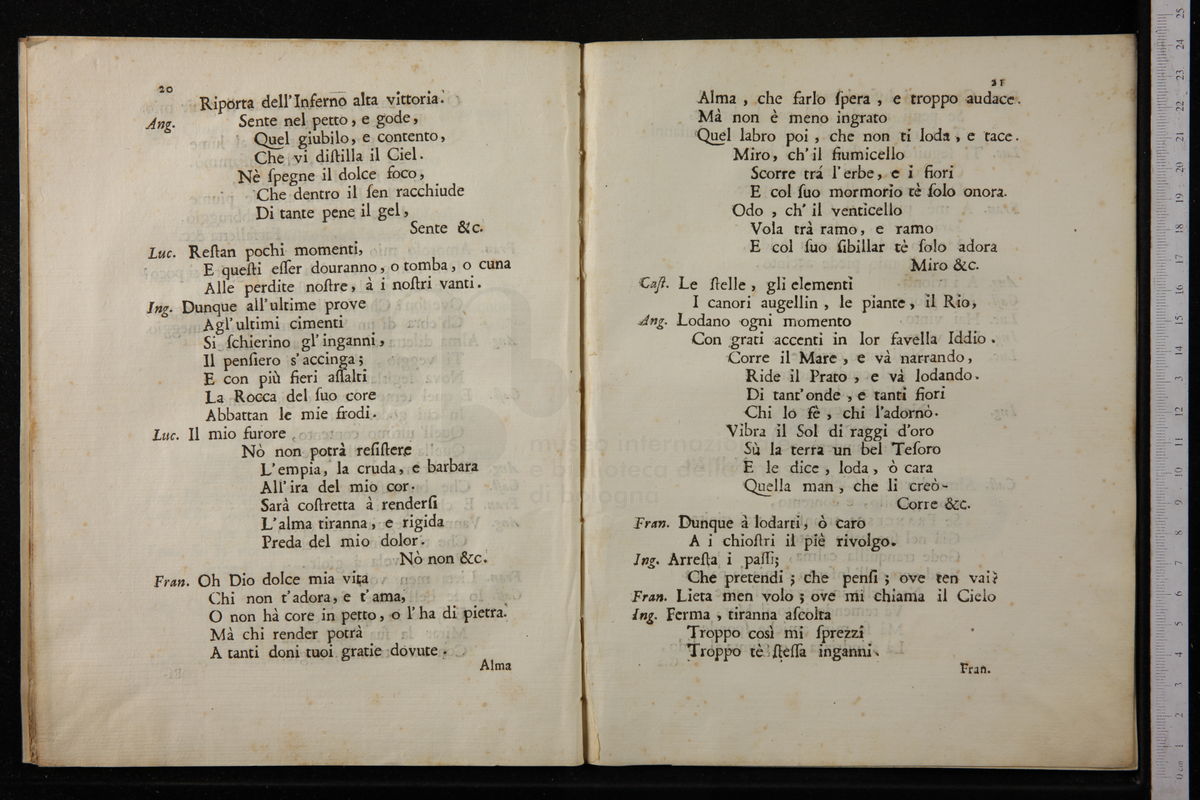 20
Riporta dell'Inferno alta vittoria.
Ang. Sente nel petto, e gode,
Quel giubilo, e contento,
Che vi diſtilla il Ciel.
Nè ſpegne il dolce foco,
Che dentro il ſen racchiude
Di tante pene il gel,
Sente &c.
Luc. Reſtan pochi momenti,
E queſti eſſer douranno, o tomba, o cuna
Alle perdite noſtre, à i noſtri vanti.
Ing. Dunque all'ultime prove
Agl'ultimi cimenti
Si ſchierino gl'inganni,
Il penſiero s'accinga;
E con più fieri aſſalti
La Rocca del ſuo core
Abbattan le mie frodi.
Luc. Il mio furore
Nò non potrà reſiſtere
L'empia, la cruda, e barbara
All'ira del mio cor.
Sarà coſtretta à renderſi
L'alma tiranna, e rigida
Preda del mio dolor.
Nò non &c.
Fran. Oh Dio dolce mia vita
Chi non t'adora, e t'ama,
O non hà core in petto, o l'ha di pietra.
Mà chi render potrà
A tanti doni tuoi gratie dovute.
Alma
21
Alma, che farlo ſpera, e troppo audace.
Mà non è meno ingrato
Quel labro poi, che non ti loda, e tace.
Miro, ch'il fiumicello
Scorre trá l'erbe, e i fiori
E col ſuo mormorio tè ſolo onora.
Odo, ch' il venticello
Vola trà ramo, e ramo
E col ſuo ſibillar tè ſolo adora
Miro &c.
Caſt. Le ſtelle, gli elementi
I canori augellin, le piante, il Rio,
Ang. Lodano ogni momento
Con grati accenti in lor favella Iddio.
Corre il Mare, e và narrando,
Ride il Prato, e và lodando.
Di tant'onde, e tanti fiori
Chi lo fè, chi l'adornò.
Vibra il Sol di raggi d'oro
Sù la terra un bel Teſoro
E le dice, loda, ò cara
Quella man, che li creò.
Corre &c.
Fran. Dunque à lodarti, ò caro
A i chioſtri il piè rivolgo.
Ing. Arreſta i paſſi;
Che pretendi; che penſi; ove ten vai?
Fran. Lieta men volo; ove mi chiama il Cielo
Ing. Ferma, tiranna aſcolta
Troppo così mi ſprezzi
Troppo tè ſteſſa inganni.
Fran.